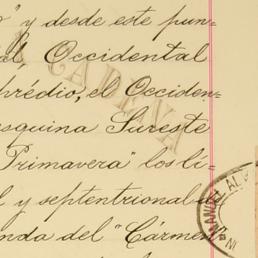 o" y desde este pun-
al, Occidental
prédio, el Occiden-
esquina Sureste
Primavera" los li-
l y septentrional de
nda del "Cármen"
CADENA
MANUEL AL